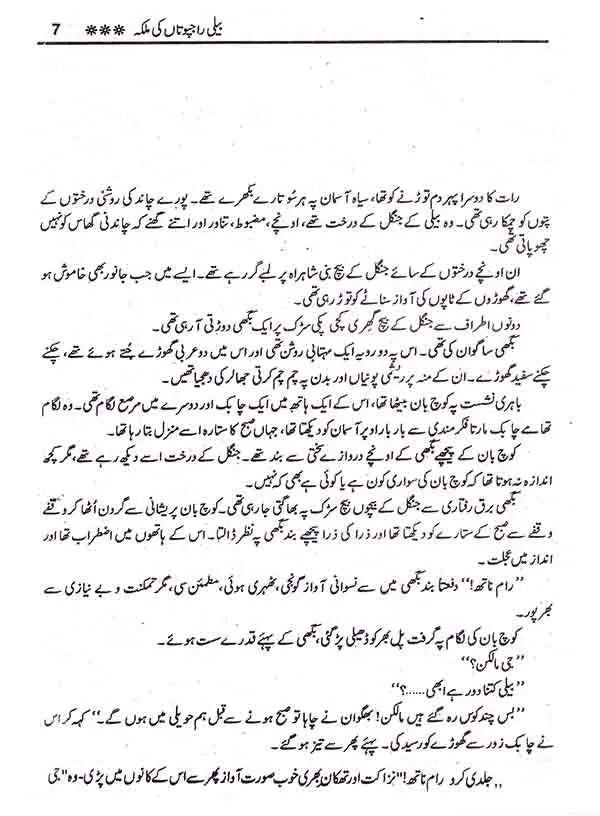 بیلی راجپوتاں کی ملکہ ✻✻✻ 7
رات کا دوسرا پہر دم توڑنے کو تھا، سیاہ آسمان پہ ہر سُو تارے بکھرے تھے۔ پورے چاند کی روشنی درختوں کے
پتوں کو چمکا رہی تھی۔ وہ بیلی کے جنگل کے درخت تھے، اونچے، مضبوط، تناور اور اتنے گھنے کہ چاندنی گھاس کو نہیں
چھو پاتی تھی۔
ان اونچے درختوں کے سائے جنگل کے بیچ بنی شاہراہ پر لمبے گر رہے تھے۔ ایسے میں جب جانور بھی خاموش ہو
گئے تھے، گھوڑوں کے ٹاپوں کی آواز سناٹے کو توڑ رہی تھی۔
دونوں اطراف سے جنگل کے بیچ گھری کچی پکی سڑک پر ایک بگھی دوڑتی آ رہی تھی۔
بگھی ساگوان کی تھی۔ اس پہ دو رویہ ایک مہتابی روشن تھی اور اس میں دو عربی گھوڑے جُتے ہوئے تھے، چکنے
چکنے سفید گھوڑے۔ ان کے منہ پر ریشمی پونیاں اور بدن پہ چم چم کرتی جھالر کی دھجیا تھیں۔
باہری نشست پہ کوچ بان بیٹھا تھا، اس کے ایک ہاتھ میں ایک چابک اور دوسرے میں مرصع لگام تھی۔ وہ لگام
تھامے چابک مارتا فکرمندی سے بار بار اوپر آسمان کو دیکھتا تھا، جہاں صبح کا ستارہ اسے منزل بتا رہا تھا۔
کوچ بان کے پیچھے بگھی کے اونچے دروازے سختی سے بند تھے۔ جنگل کے درخت اسے دیکھ رہے تھے، مگر کچھ
اندازہ نہ ہوتا تھا کہ کوچ بان کی سواری کون ہے یا کوئی ہے بھی کہ نہیں۔
بگھی برق رفتاری سے جنگل کے بیچوں بیچ سڑک پہ بھاگتی جا رہی تھی۔ کوچ بان پریشانی سے گردن اُٹھا کر وقفے
وقفے سے صبح کے ستارے کو دیکھتا تھا اور ذرا کی ذرا پیچھے بند بگھی پہ نظر ڈالتا۔ اس کے ہاتھوں میں اضطراب تھا اور
انداز میں عجلت۔
”رام ناتھ!“ دفعتاً بند بگھی میں سے نسوانی آواز گونجی، ٹھہری ہوئی، مطمئن سی، مگر تمکنت و بے نیازی سے
بھرپور۔
کوچ بان کی لگام پہ گرفت پل بھر کو ڈھیلی پڑ گئی، بگھی کے پہیے قدرے سست ہوئے۔
”جی مالکن؟“
”بیلی کتنا دور ہے ابھی......؟“
”بس چند کوس رہ گئے ہیں مالکن! بھگوان نے چاہا تو صبح ہونے سے قبل ہم حویلی میں ہوں گے۔“ کہہ کر اس
نے چابک زور سے گھوڑے کو رسید کی۔ پہیے پھر سے تیز ہو گئے۔
”جلدی کرو رام ناتھ!“ نزاکت اور تھکان بھری خوب صورت آواز پھر سے اس کے کانوں میں پڑی۔ وہ ”جی